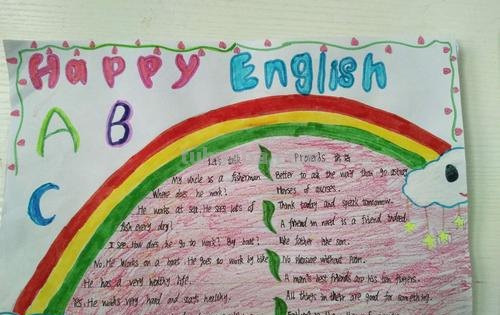 Happy English
A B
C
Let's talk
My uncle is a fisherman.
Where does he work?
He works at sea. He sees lots of
fish every day!
I see. How does he go to work? By boat?
No. He works on a boat. He goes to work by bike
He has a very healthy life.
Yes. He works very hard and stays healthy.
Proverbs
Better to ask the way than go astray
Think today and speak tomorrow.
A friend in need is a friend indeed.
Like father like son.
No pleasure without pain.
A man's best friends are his ten fingers.
All things in their are good for something.